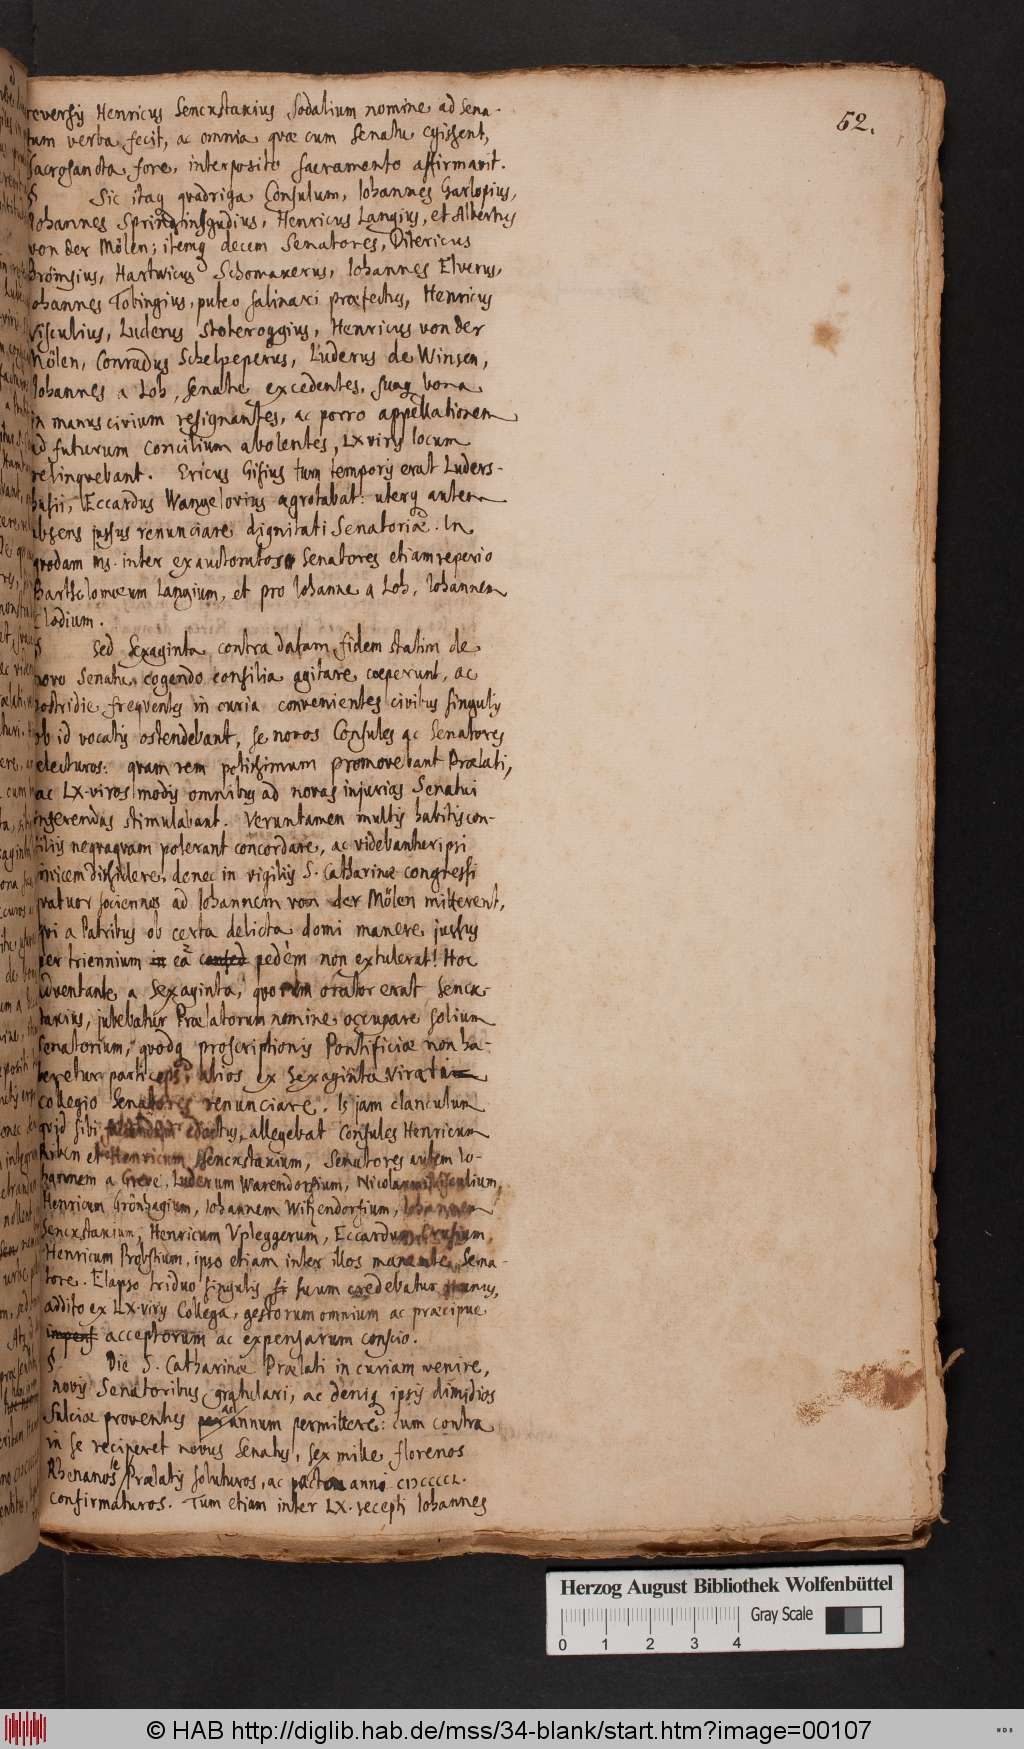 52.
reversis Henricus Senckstakius Sodalium nomine ad Sena-
tum verba fecit, ac omnia quæ cum Senatu egissent,
Sacrosancta fore, interposito sacramento affirmavit.
§ Sic itaq quadriga Consulum, Iohannes Garlopius,
Iohannes Henricus Langius, et Albertus
von der Mölen; itemq decem Senatores, Ditericus
Brömsius, Hartwicus Schomakerus, Iohannes Elverus,
Iohannes Tobingius, puteo salinari præfectus, Henricus
Visculius, Luderus Stoteroggius, Henricus von der
Mölen, Conradus Schelpeperus, Luderus de Winsen,
Iohannes a Loh, Senatu excedentes, suaq bona
in manus civium resignantes, ac porro appellationem
ad futurum Concilium abolentes, LX viris locum
relinquebant. Ericus Gisius tum temporis erat Luders-
husii, Eccardus Wangelovius ægrotabat: uterq autem
absens jussus renunciare dignitati Senatoriæ. In
quodam ms. inter exauctoratos Senatores etiam reperio
Bartholomæum Langium, et pro Iohanne a Loh, Iohannem
Flodium.
§ Sed Sexaginta contra datam fidem statim de
novo Senatu cogendo consilia agitare cœperunt, ac
postridie frequentes in curia convenientes civibus singulis
ob id vocatis ostendebant, se novos Consules ac Senatores
electuros: quam rem potissimum promovebant Prælati,
ac LX-viros modis omnibus ad novas injurias Senatui
ingerendas stimulabant. Veruntamen multis habitis con-
siliis neqvaqvam poterant concordare, ac videbantur ipsi
invicem dissidere, donec in vigiliis S. Catharinæ congressi
quatuor sociennos ad Iohannem von der Mölen mitterent,
qui a Patribus ob certa delicta domi manere jussus
per triennium in eâ pedem non extulerat! Hoc
adventante a Sexaginta, quorum orator erat Senck-
stakius, jubebatur Prælatorum nomine occupare solium
Senatorium, quodq proscriptionis Pontificiæ non ha-
beretur particeps; alios ex Sexaginta
collegio Senatores renunciare. Is jam clanculum
quid sibi faciendum edoctus, allegebat Consules Henricum
Ribin et Henricum Senckstakium, Senatores autem Io-
hannem a Greve, Luderum Warendorfium, Nicolaum Visculium,
Henricum Grönhagium, Iohannem Witzendorfium, Iohannem
Senckstakium, Henricum Vpleggerum, Eccardum Crusium,
Henricum Probstium, ipso etiam inter illos manente Sena-
tore. Elapso triduo singulis suum credebatur munus,
addito ex LX-viris Collega, gestorum omnium ac præcipue
impens acceptorum ac expensarum conscio.
§ Die S. Catharinæ Prælati in curiam venire,
novis Senatoribus gratulari, ac deniq ipsis dimidios
Sulciæ proventus per ad annum permittere: cum contra
in se reciperet novus Senatus, sex mille florenos
Rhenanos se Prælatis soluturos, ac pacta anni
confirmaturos. Tum etiam inter LX. recepti Iohannes
Herzog August Bibliothek Wolfenbüttel
0 1 2 3 4
Gray Scale
© HAB http://diglib.hab.de/mss/34-blank/start.htm?image=00107